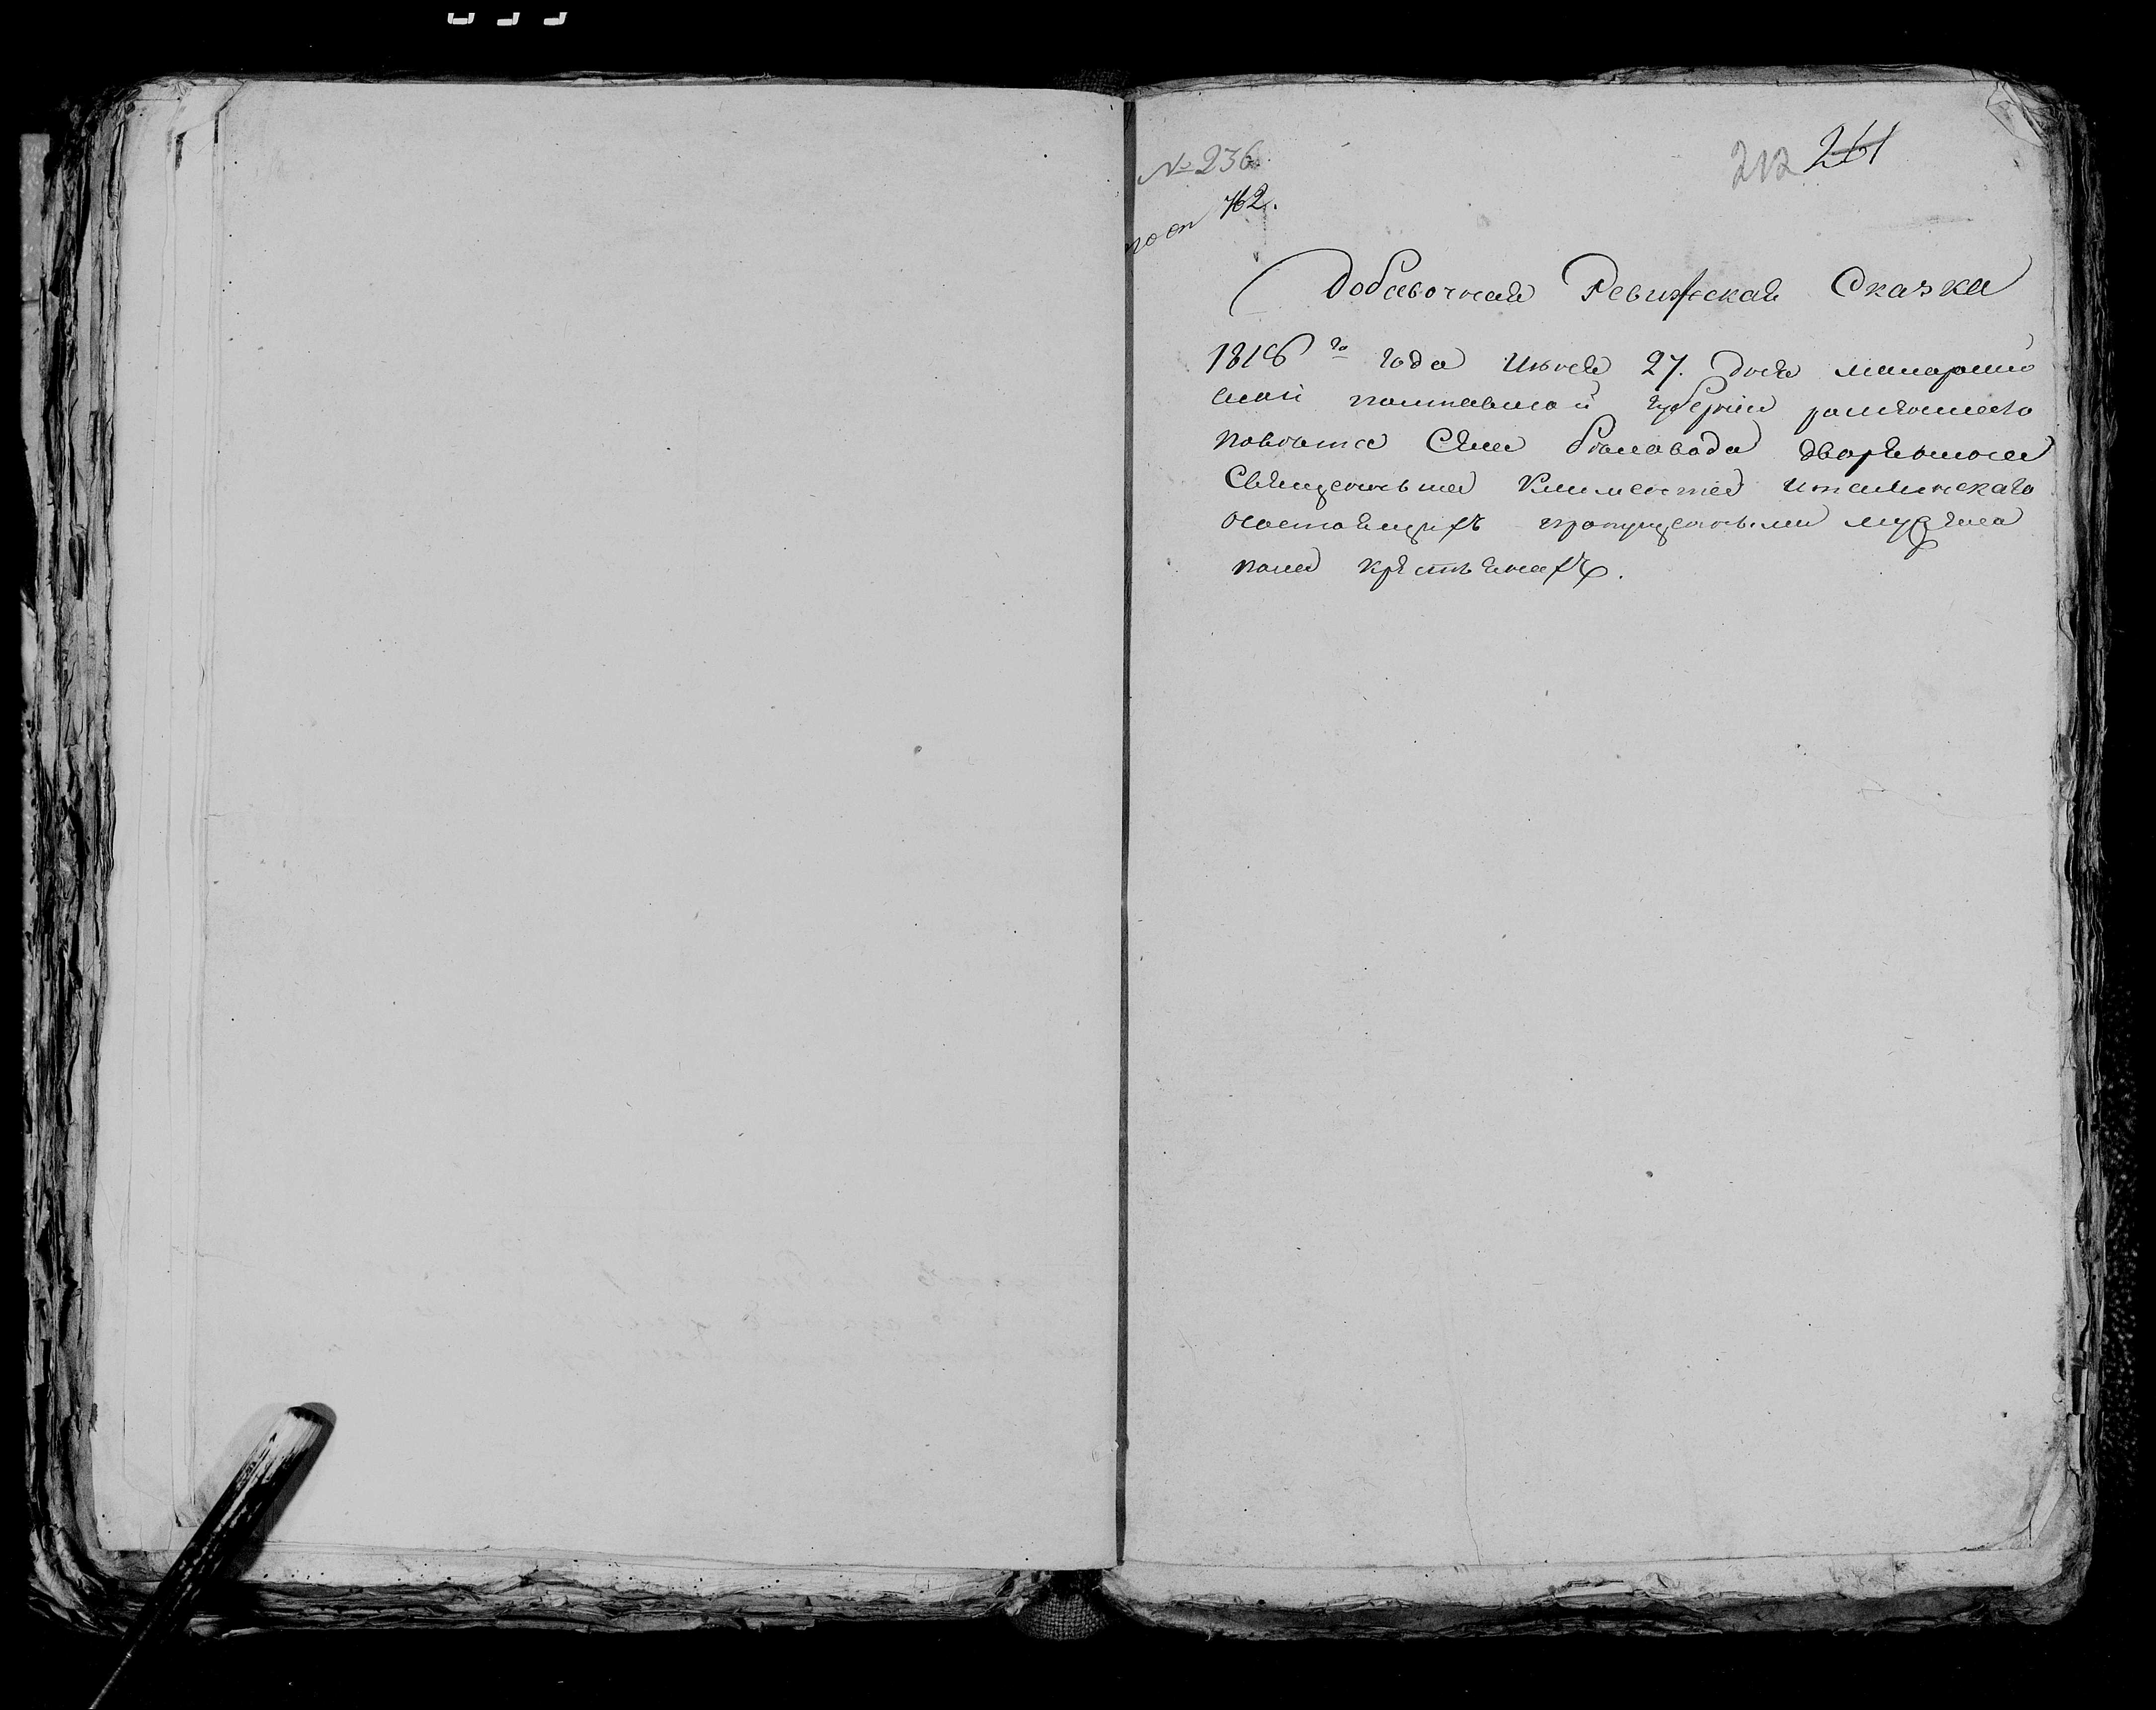 № 236
по оп 762.
212 261
Добавочная Ревижская Сказка
1816 го года июня 27. дня малоросий
ской полтавской губернии роменского
повета Села беловода дворянина
Священника Климентия
осостоящихъ пропущеными мужеска
пола крестянахъ.